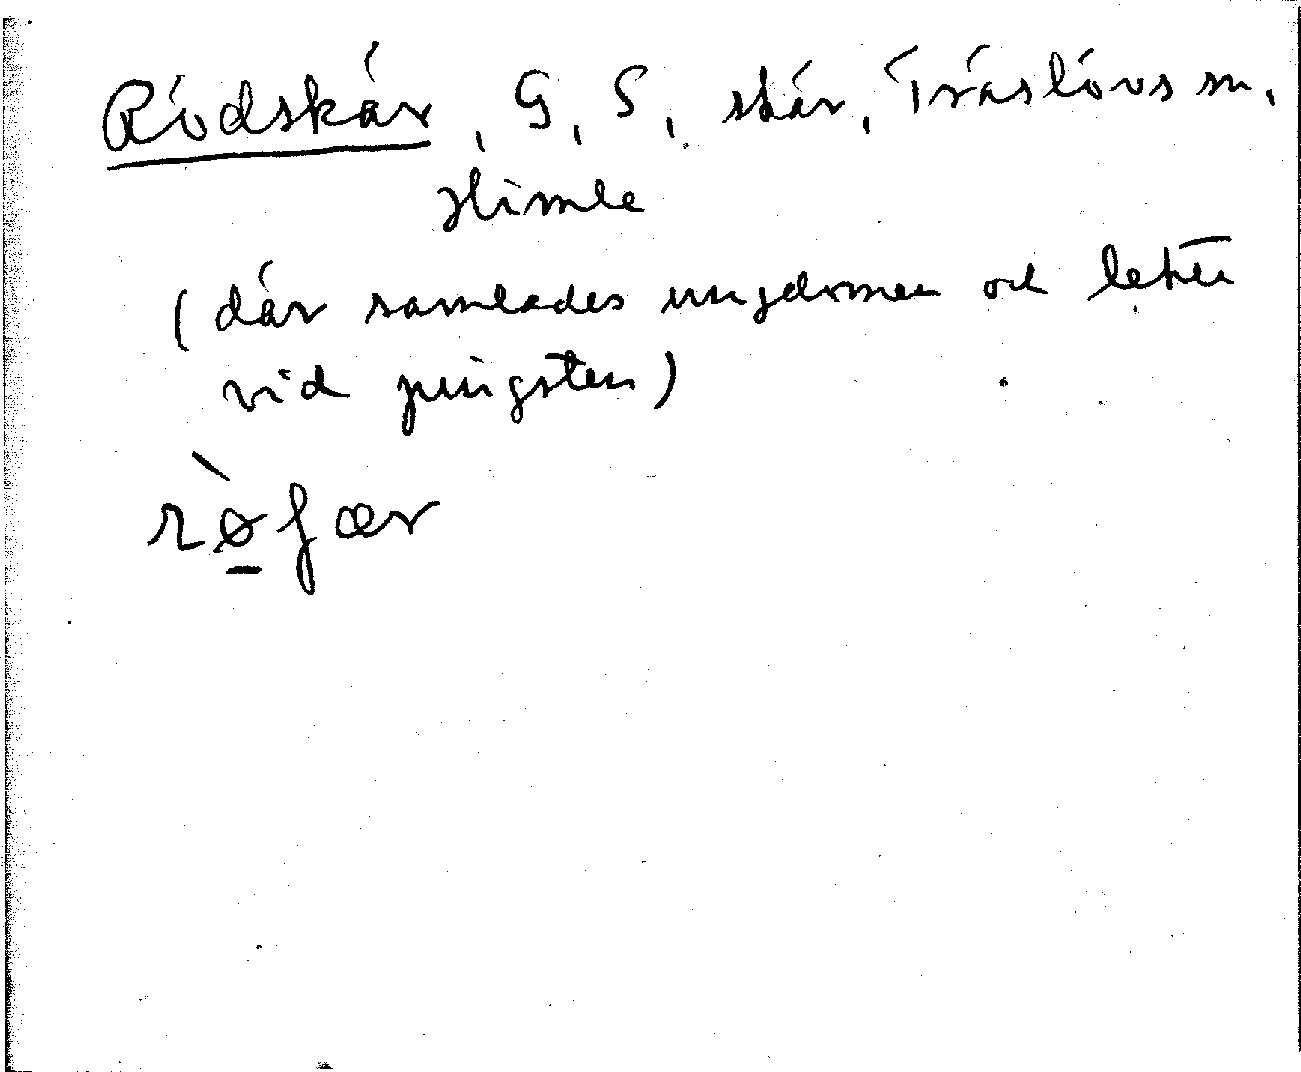 Rödskär, G, S, skär, Träslövs sn,
Himle
(där samlades ungdomen och lekte
vid pingsten)
rø̀ʃær